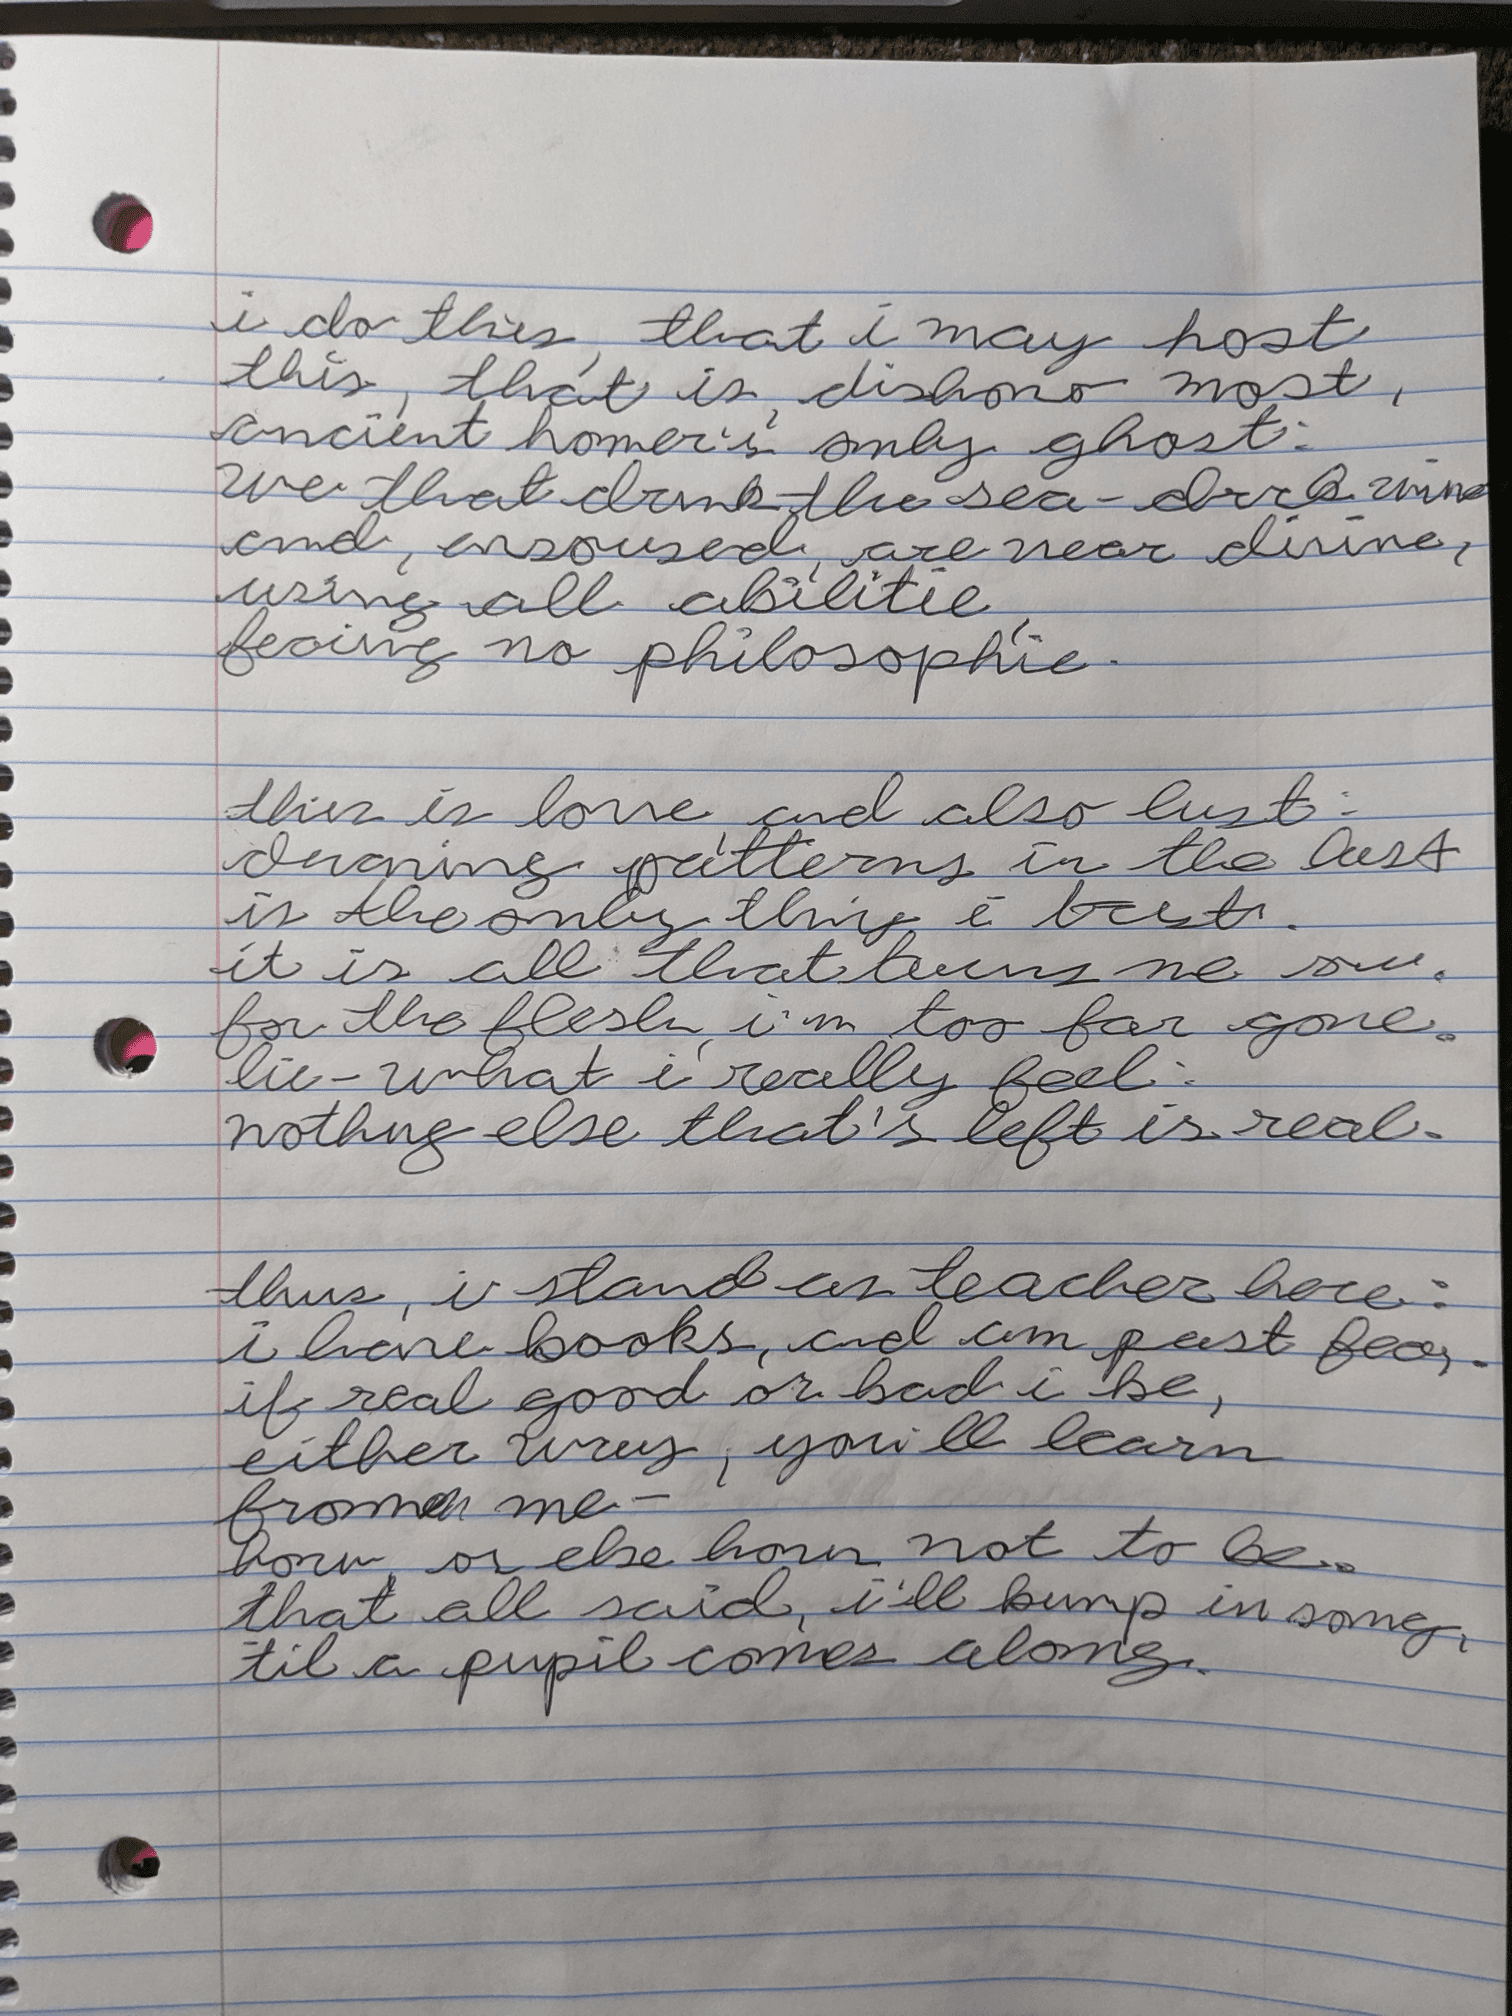 i do this, that i may host
this, that is, dishono most,
ancient homer's only ghost:
we that drink the sea-dark wine
and, ensoused, are near divine,
using all abilitie,
fearing no philosophie.
this is love, and also lust:
drawing patterns in the dust
is the only thing i trust.
it is all that turns me on.
for the flesh, i'm too far gone.
lie - what i really feel:
nothing else that's left is real.
thus, i stand as teacher here:
i have books, and am past fear.
if real good or bad i be,
either way, you'll learn
from me -
how, or else how not to be.
that all said, i'll bump in song,
til a pupil comes along.